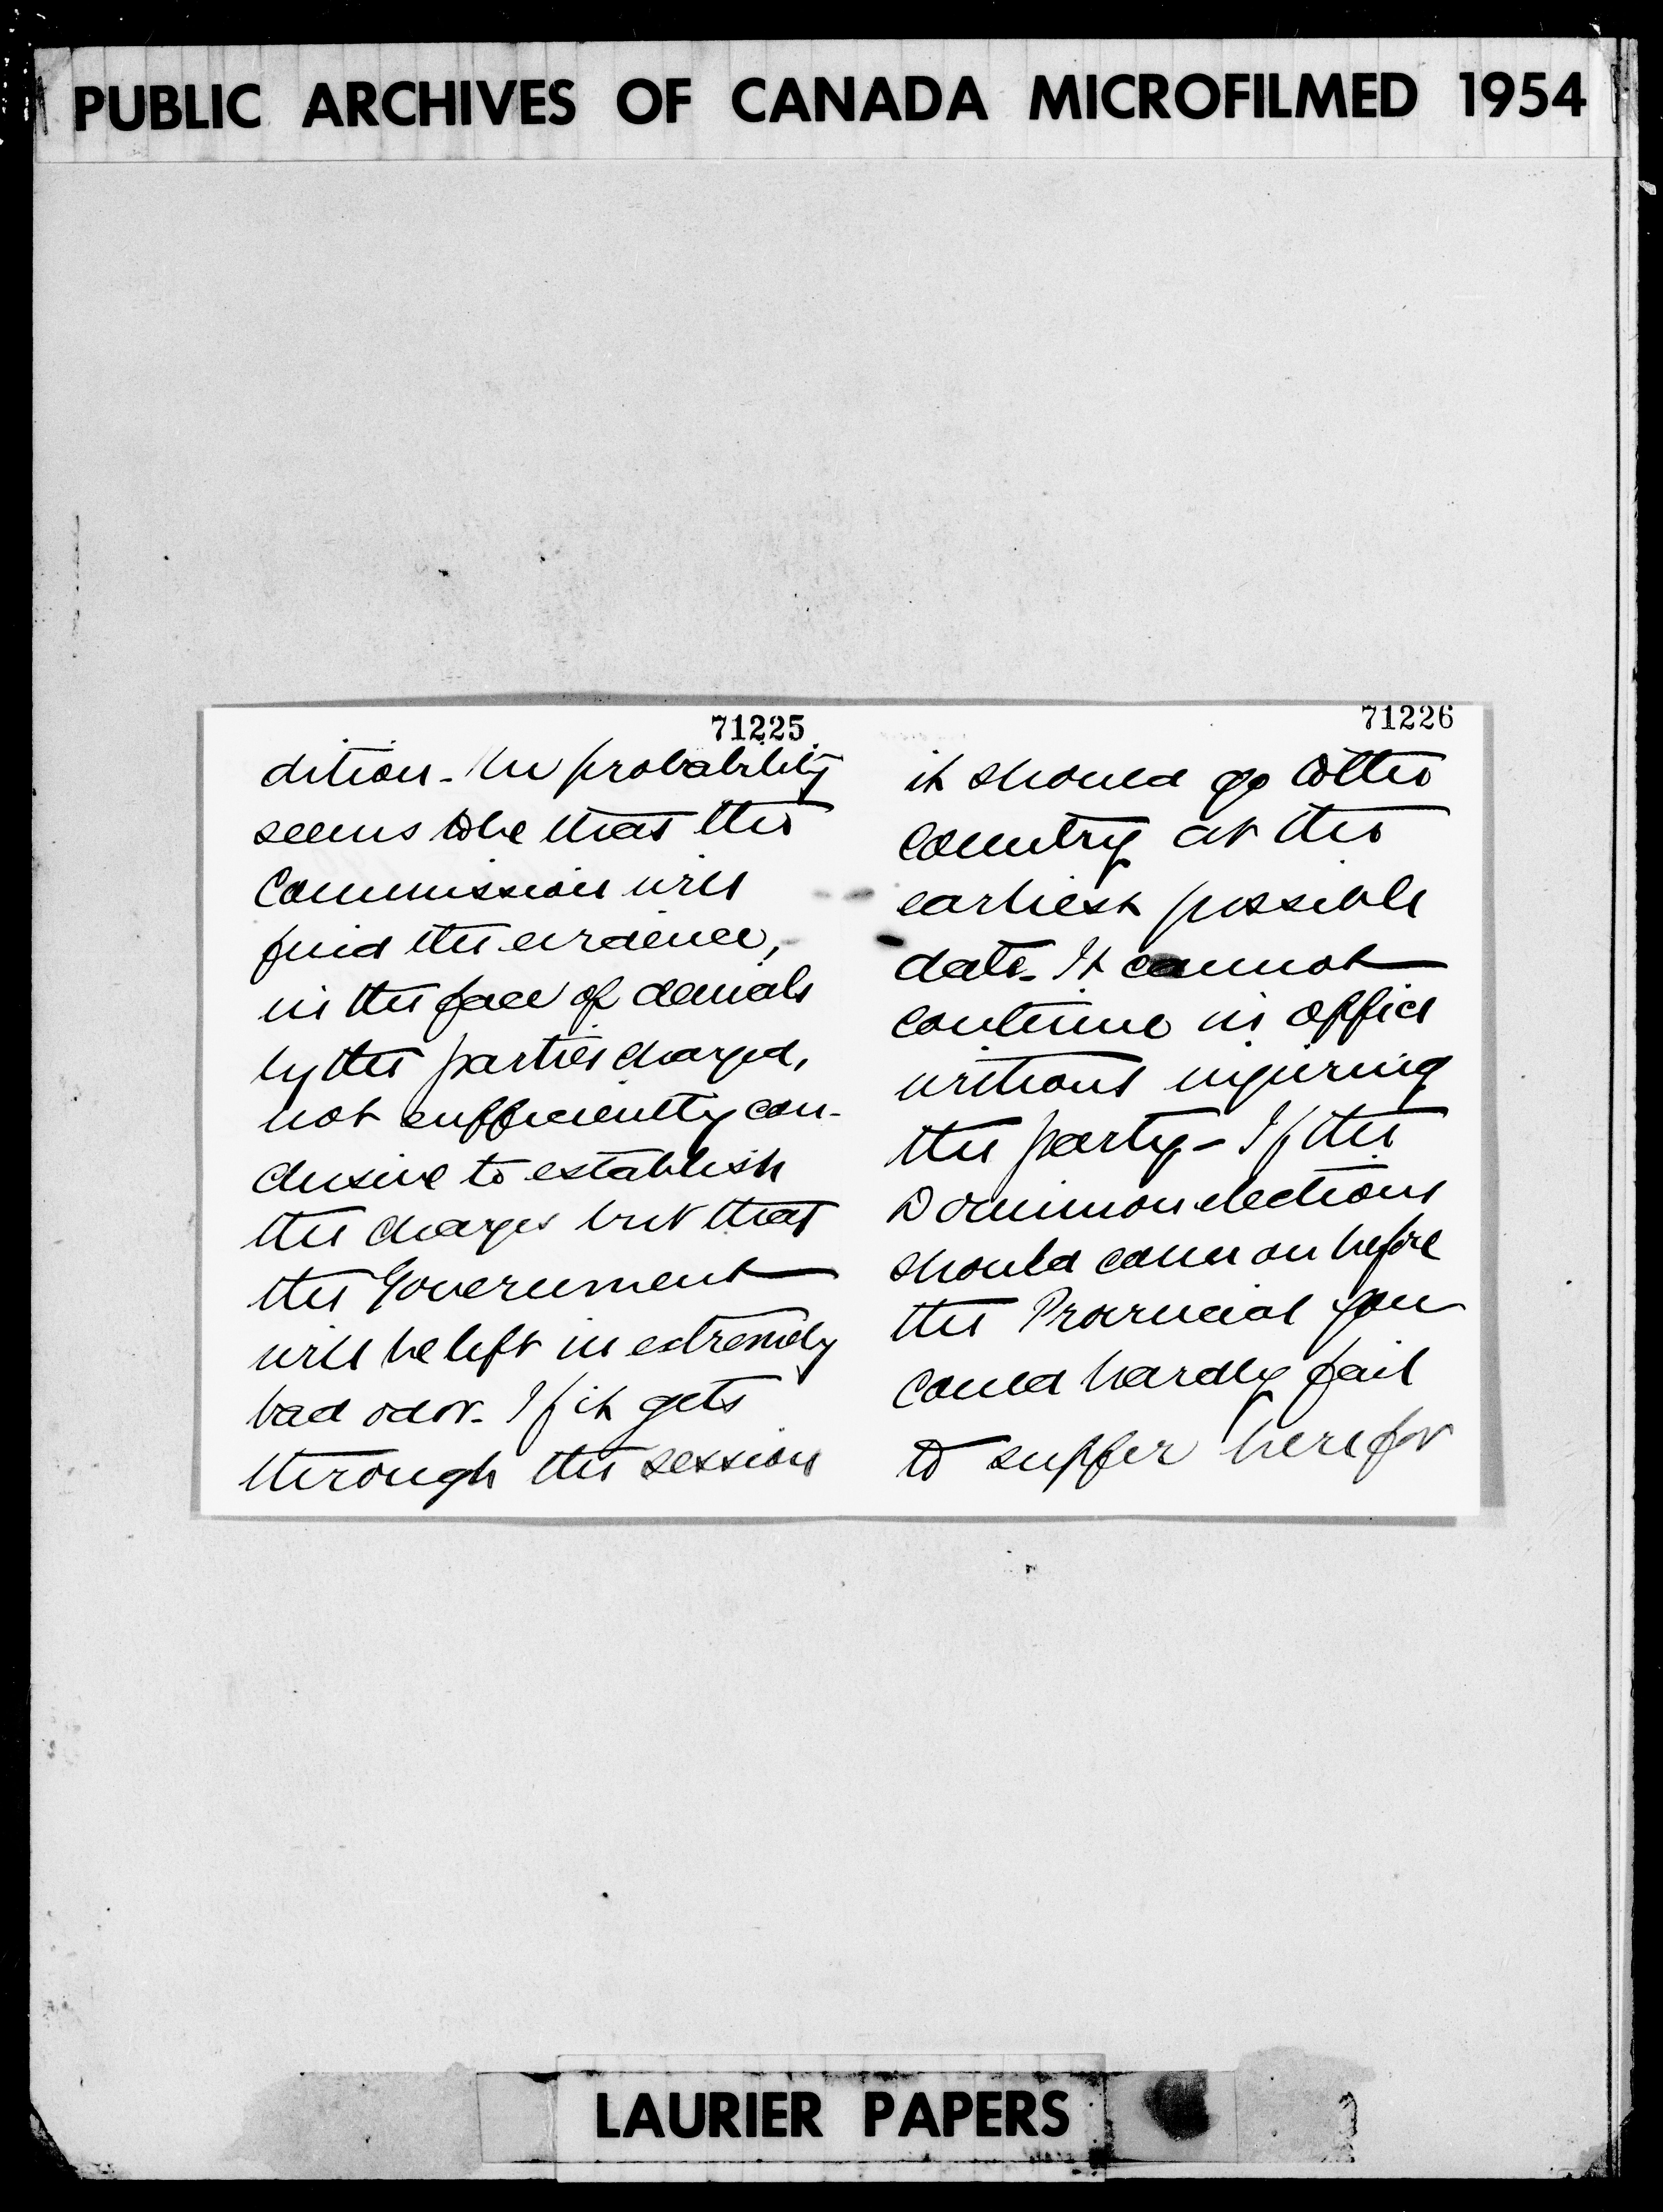 PUBLIC ARCHIVES OF CANADA MICROFILMED 1954
71225
dition. The probability
seems to be that the
Commission will
find the evidence,
in the face of denials
by the parties charged,
not sufficiently con-
clusive to establish
the charges but that
the Government
will be left in extremely
bad odor. If it gets
through the session
71226
it should go to the
country at the
earliest possible
date. It cannot
continue in office
without injuring
the party - If the
Dominion elections
should come on before
the Provincial you
could hardly fail
to suffer here for
LAURIER PAPERS